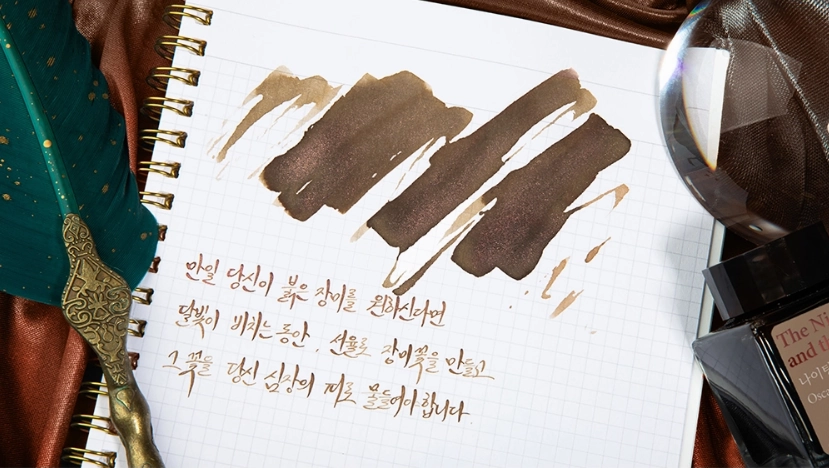 만일 당신이 붉은 장미를 원하신다면
달빛이 비치는 동안, 선율로 장미꽃을 만들고
그 꽃을 당신 심장의 피로 물들여야 합니다.
The Ni
and th
나이트
Osca